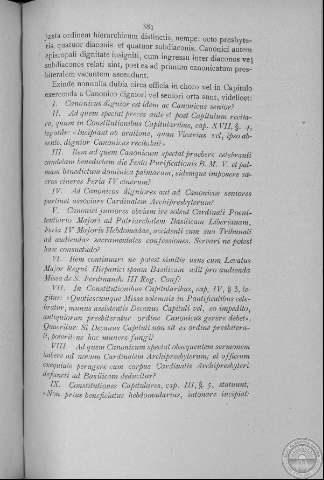 381
juxta ordinem hierarchicum distinctis, nempe: octo presbyte-
ris, quatuor diaconis et quatuor subdiaconis. Canonici autem
episcopali dignitate insigniti, cum ingressu inter diaconos vel
subdiaconos relati sint, post ea ad primum canonicatum pres-
biteralem vacantem ascendunt.
Exinde nonnulla dubia circa officia in choro vel in Capitulo
exercenda a Canonico digniori vel seniori orta sunt, videlicet:
I. Canonicus dignior est idem ac Canonicus senior?
II. Ad quem spectat preces ante et post Capitulum recita-
re, quum in Constitutionibus Capitularibus, cap. XVII, §. 4,
legatur: «Incipiant ab oratione, quam Vicarius vel, ipso ab-
sente, dignior Canonicus recitabit».
III. Item ad quem Canonicum spectat praebere celebranti
candelam benedictam die Festo Purificationis B. M. V. et pal-
mam benedictam dominica palmarum, eidemque imponere sa-
cros cineres Feria IV cinerum?
IV. Ad Canonicos digniores aut ad Canonicos seniores
pertinet associare Cardinalem Archipresbyterum?
V. Canonici juniores obviam ire solent Cardinali Poeni-
tentiario Majori ad Patriarchalem Basilicam Liberianam,
Feria IV Majoris Hebdomadae, accidenti cum suo Tribunali
ad audiendas sacramentales confessiones. Servari ne potest
haec consuetudo?
VI. Item continuari ne potest similis usus cum Legatus
Major Regni Hispanici ipsam Basilicam adit pro audienda
Missa de S. Ferdinando III Reg. Conf?
VII. In Constitutionibus Capitularibus, cap. IV, § 3, le-
gitur: «Quotiescumque Missa solemnis in Pontificalibus cele-
bratur, munus assistentis Decanus Capituli vel, eo impedito,
antiquioran presbiteratur ordine Canonicis gerere debet».
Quaeritur: Si Decanus Capituli non sit ex ordine presbitera-
li, poterit ne hoc munere fungi?
VIII. Ad quem Canonicum spectat obsequentem sermonem
habere ad novum Cardinalem Archipresbyterum, et officium
exequiale peragere cum corpus Cardinalis Archipresbyteri
defuncti ad Basilicam deducitur?
IX. Constitutiones Capitulares, cap. III, §. 5, statuunt,
«Non prius beneficiatus hebdomadarius, intonare incipiat